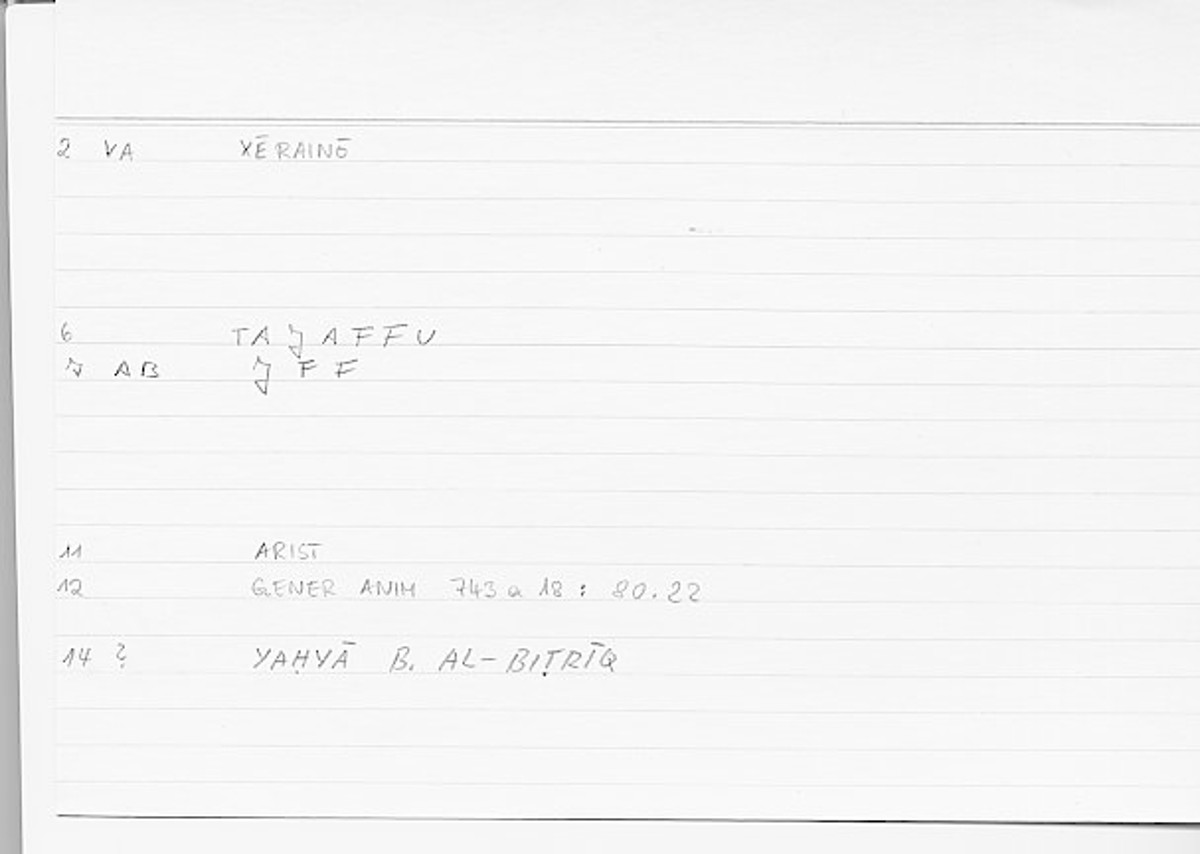 2 VA XĒRAINŌ
6 TAJAFFU
7 AB JFF
11 ARIST
12 GENER ANIM 743a18 : 80.22
14 ? YAḤYĀ B. AL-BIṬRĪQ